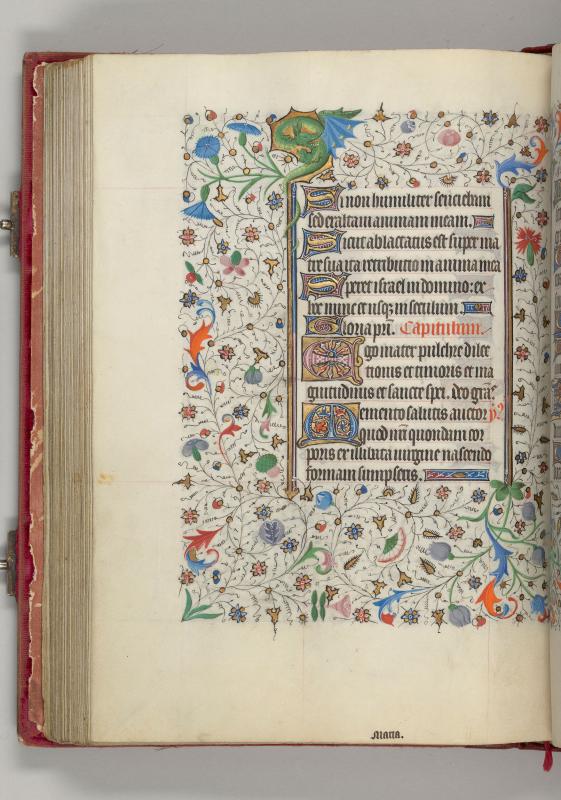 Si non humiliter sentiebam
sed exaltavi animam meam.
Sicut ablactatus est super ma
tre sua ita retributio in anima mea
Speret israel in domino: ex
hoc nunc et usqz in seculum.
Gloria pri. Capitulum.
Ego mater pulchre dilec
tionis et timoris et ma
gnitudinis et sancte spei. deo gras
Memento salutis auctor
quod nri quondam cor
poris ex illibata virgine nascendo
formam sumpseris.
Maria.